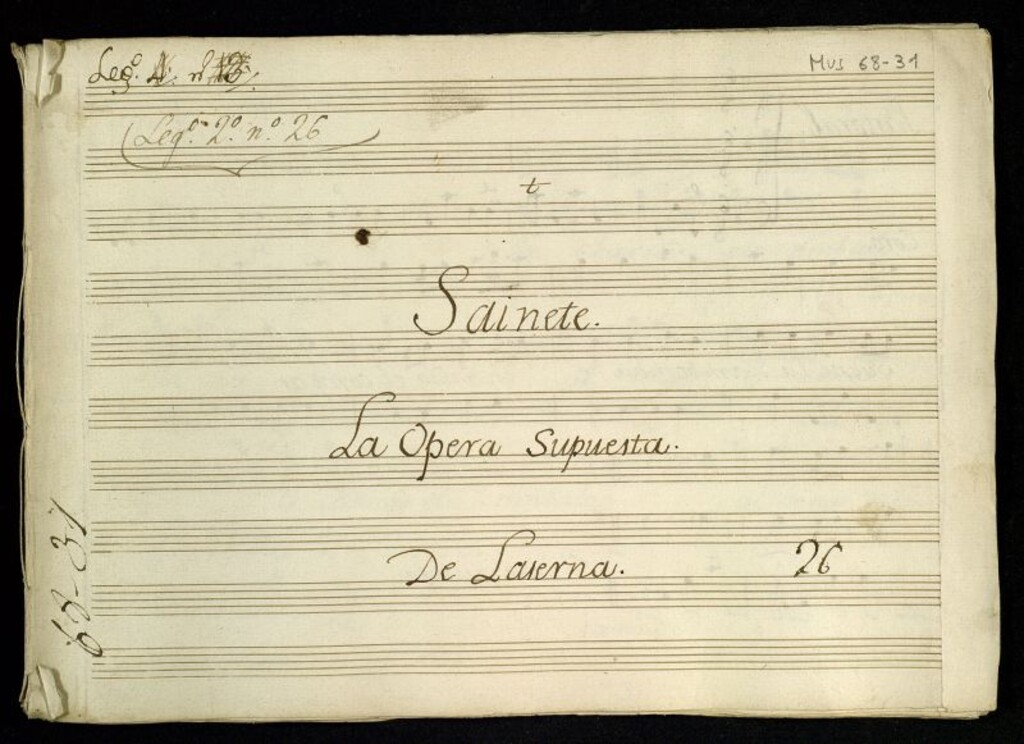 Leg.º 4. nº
Mus 68-31
(Leg.º 2.º n.º 26
t
Sainete.
La Opera Supuesta.
De Laserna.
26
68-31